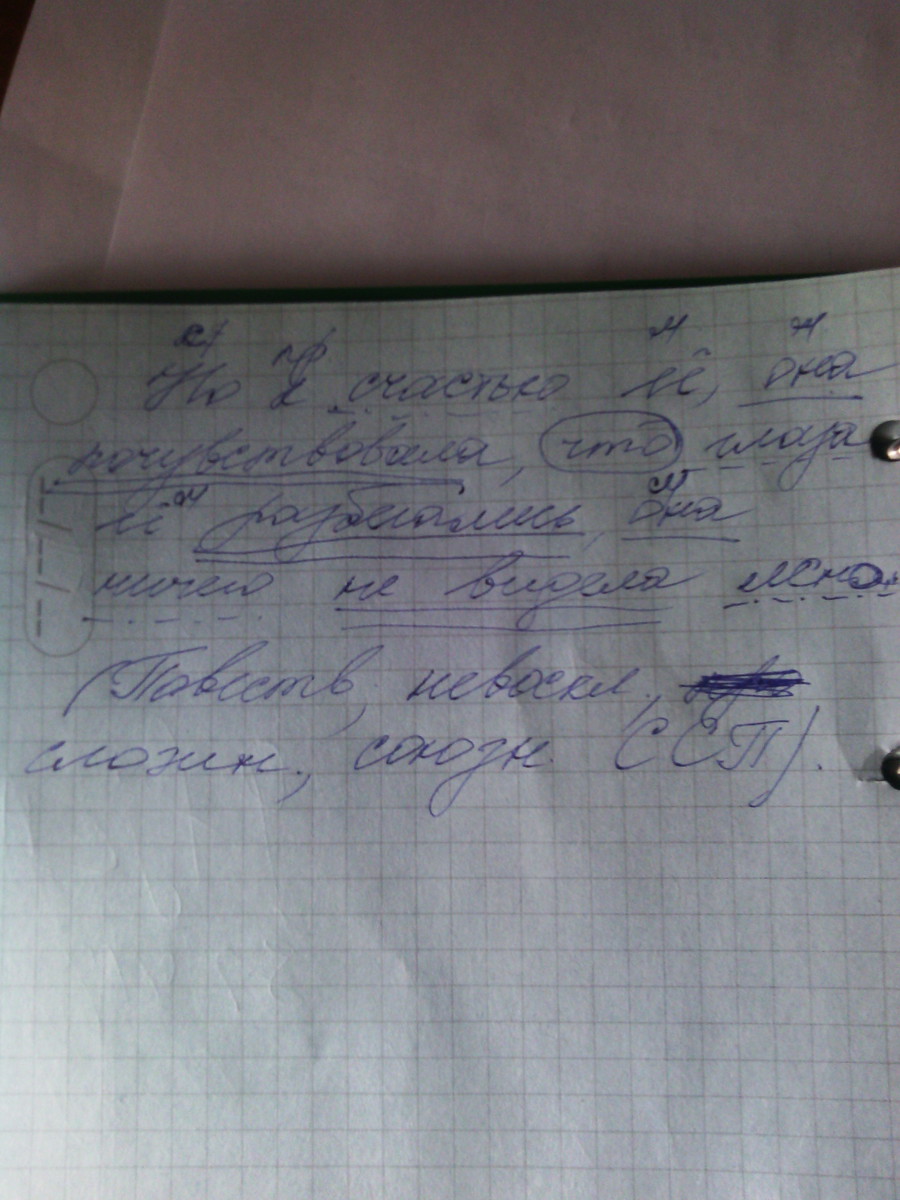 Но к счастью её, она
почувствовала, что глаза
её разбегались, она
ничего не видела ясно.
(Повеств., невоскл.,
сложн., союзн. (ССП).